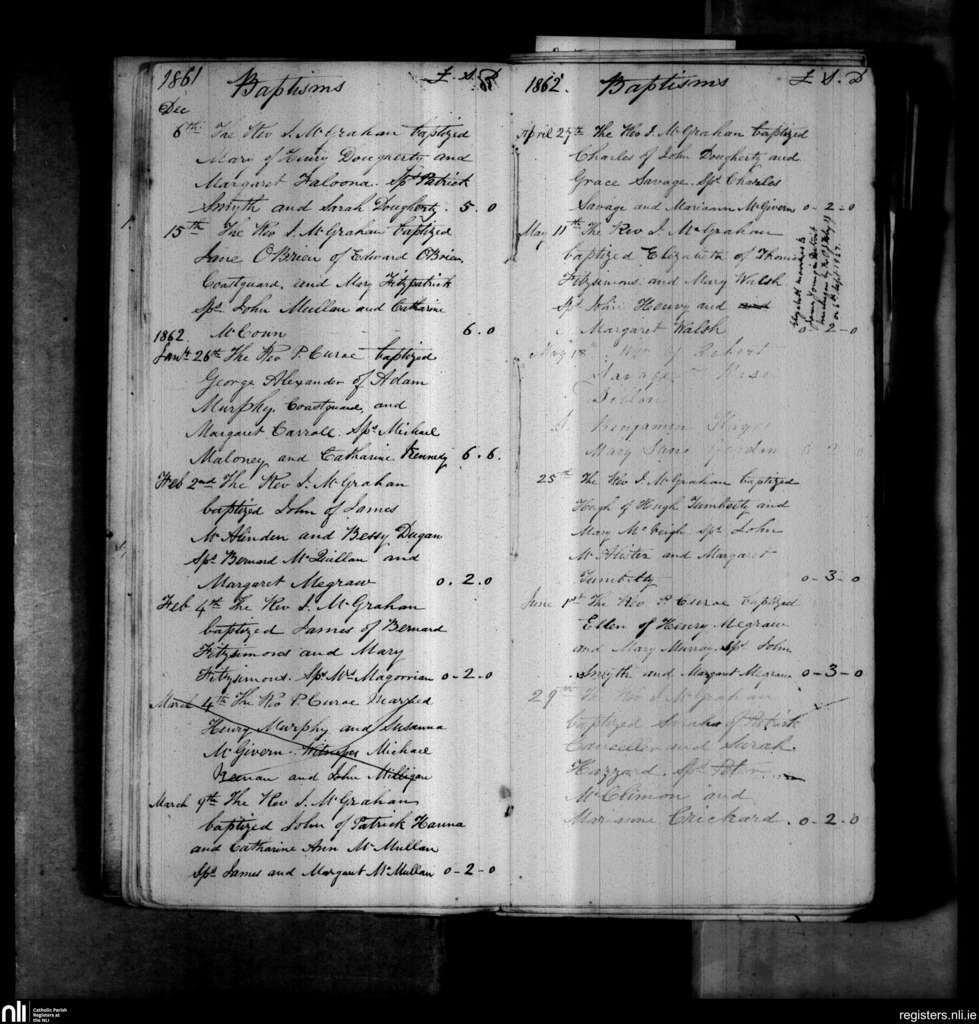 1861 Baptisms £. S. D
Dec
6th The Rev J. McGrahan baptized
Mary of Henry Dougherty and
Margaret Faloona. Sps Patrick
Smyth and Sarah Dougherty. 5. 0
15th The Rev J. McGrahan baptized
Jane O'Brien of Edward O'Brien
Coastguard, and Mary Fitzpatrick
Sps. John Mullan and Catharine
McCoun 6. 0
1862
Janry 26th The Rev P. Curoe baptized
George Alexander of Adam
Murphy, Coastguard, and
Margaret Carroll. Sps. Michael
Maloney and Catharine Kennedy 6. 6.
Feb 2nd The Rev J. McGrahan
baptized John of James
McAlinden and Bessy Dugan
Sps. Bernard McQuillan and
Margaret Megraw 0. 2. 0
Feb 4th The Rev J. McGrahan
baptized James of Bernard
Fitzsimons and Mary
Fitzsimons. Sps. Mrs Magorrian 0-2-0
March 4th The Rev P. Curoe Married
Henry Murphy and Susanna
McGivern. Witnesses Michael
Neenan and John Milligan
March 9th The Rev J. McGrahan
baptized John of Patrick Hanna
and Catharine Ann McMullan
Sps. James and Margaret McMullan 0-2-0
1862. Baptisms £ S. D
April 27th The Rev J. McGrahan baptized
Charles of John Dougherty and
Grace Savage. Sps. Charles
Savage and Mariann McGivern 0-2-0
May 11th The Rev J. McGrahan
baptized Elizabeth of Thomas
Fitzsimons and Mary Walsh
Sps. John Henry and
Margaret Walsh 0-2-0
Elizabeth married to
May 18th Robert
Savage
Benjamin
Mary Jane
25th The Rev J. McGrahan baptized
Hugh of Hugh Tumbelty and
Mary McVeigh Sps. John
McAlister and Margaret
Tumbelty 0-3-0
June 1st The Rev P. Curoe baptized
Ellen of Henry Megraw
and Mary Murray. Sps. John
Smyth and Margaret Megraw 0-3-0
29th The Rev J. McGrahan
baptized Sarah of Patrick
and Sarah
Hazzard. Sps. Peter
McClimon and
Marianne Crickard. 0-2-0
nli Catholic Parish
Registers at
the NLI
registers.nli.ie